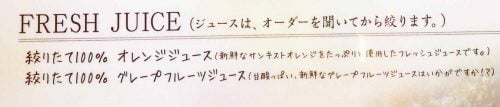 FRESH JUICE（ジュースは、オーダーを聞いてから絞ります。）
絞りたて100％ オレンジジュース（新鮮なサンキストオレンジをたっぷり使用したフレッシュジュースです。）
絞りたて100％ グレープフルーツジュース（甘酸っぱい、新鮮なグレープフルーツジュースはいかがですか!?）